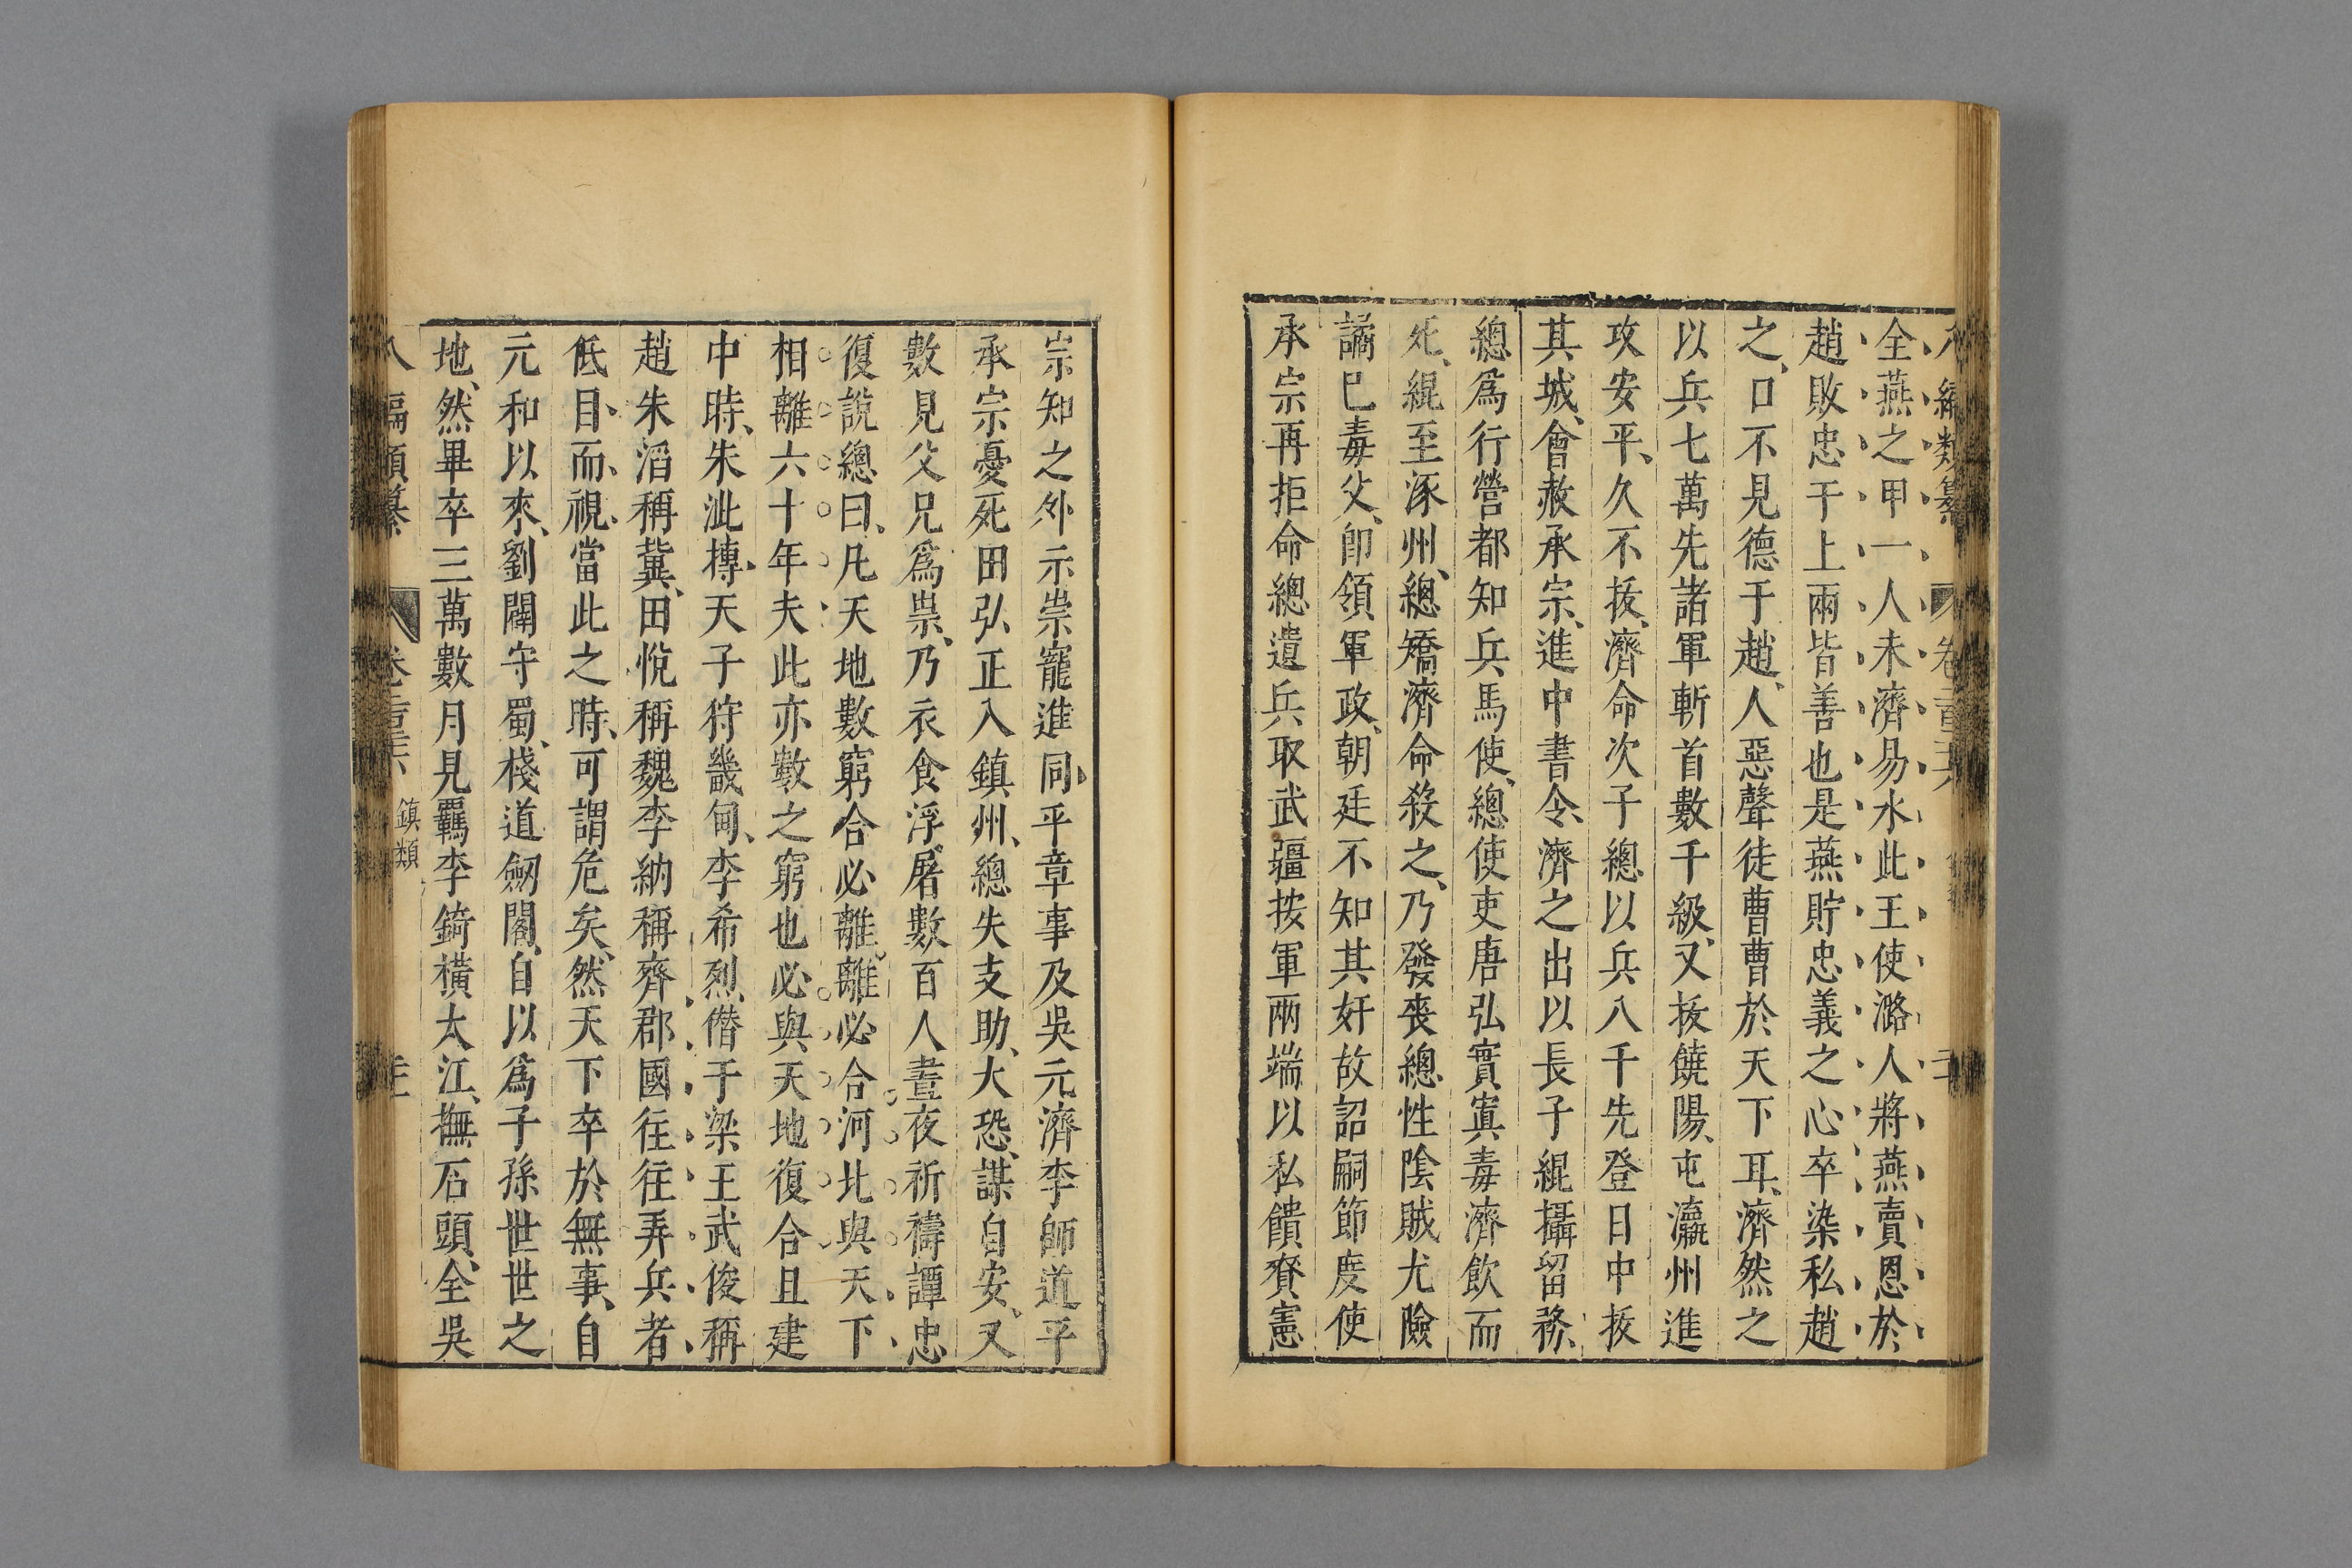 全燕之甲一人未濟易水此王使潞人將燕賣恩於
趙敗忠于上兩皆善也是燕貯忠義之心卒染私趙
之、口不見德于趙、人惡聲徒曹曹於天下耳、濟然之
以兵七萬先諸軍斬首數千級、又拔饒陽、屯瀛州進
攻安平、久不拔、濟命次子總以兵八千先登日中拔
其城、會赦承宗、進中書令、濟之出以長子緄攝留務、
總爲行營都知兵馬使、總使吏唐弘實寘毒濟飲而
死、緄至涿州、總矯濟命殺之、乃發喪總性陰賊尤險
譎已毒父、卽領軍政、朝廷不知其奸故詔嗣節度使
承宗再拒命總遣兵取武疆按軍兩端以私饋賚憲
宗知之外示崇寵進同平章事及吳元濟李師道平
承宗憂死田弘正入鎮州、總失支助、大恐、謀自安、又
數見父兄爲祟、乃衣食浮屠數百人晝夜祈禱譚忠
復說總曰、凡天地數窮合必離、離必合河北與天下
相離六十年夫此亦數之窮也必與天地復合且建
中時、朱泚摶天子狩畿甸、李希烈僭于梁王武俊稱
趙朱滔稱冀、田悅稱魏李納稱齊郡國往往弄兵者
低目而視、當此之時、可謂危矣、然天下卒於無事、自
元和以來、劉闢守蜀、棧道劒閣、自以爲子孫世世之
地、然畢卒三萬數月見羈李錡橫大江、撫石頭、全吳
卷 鎮類